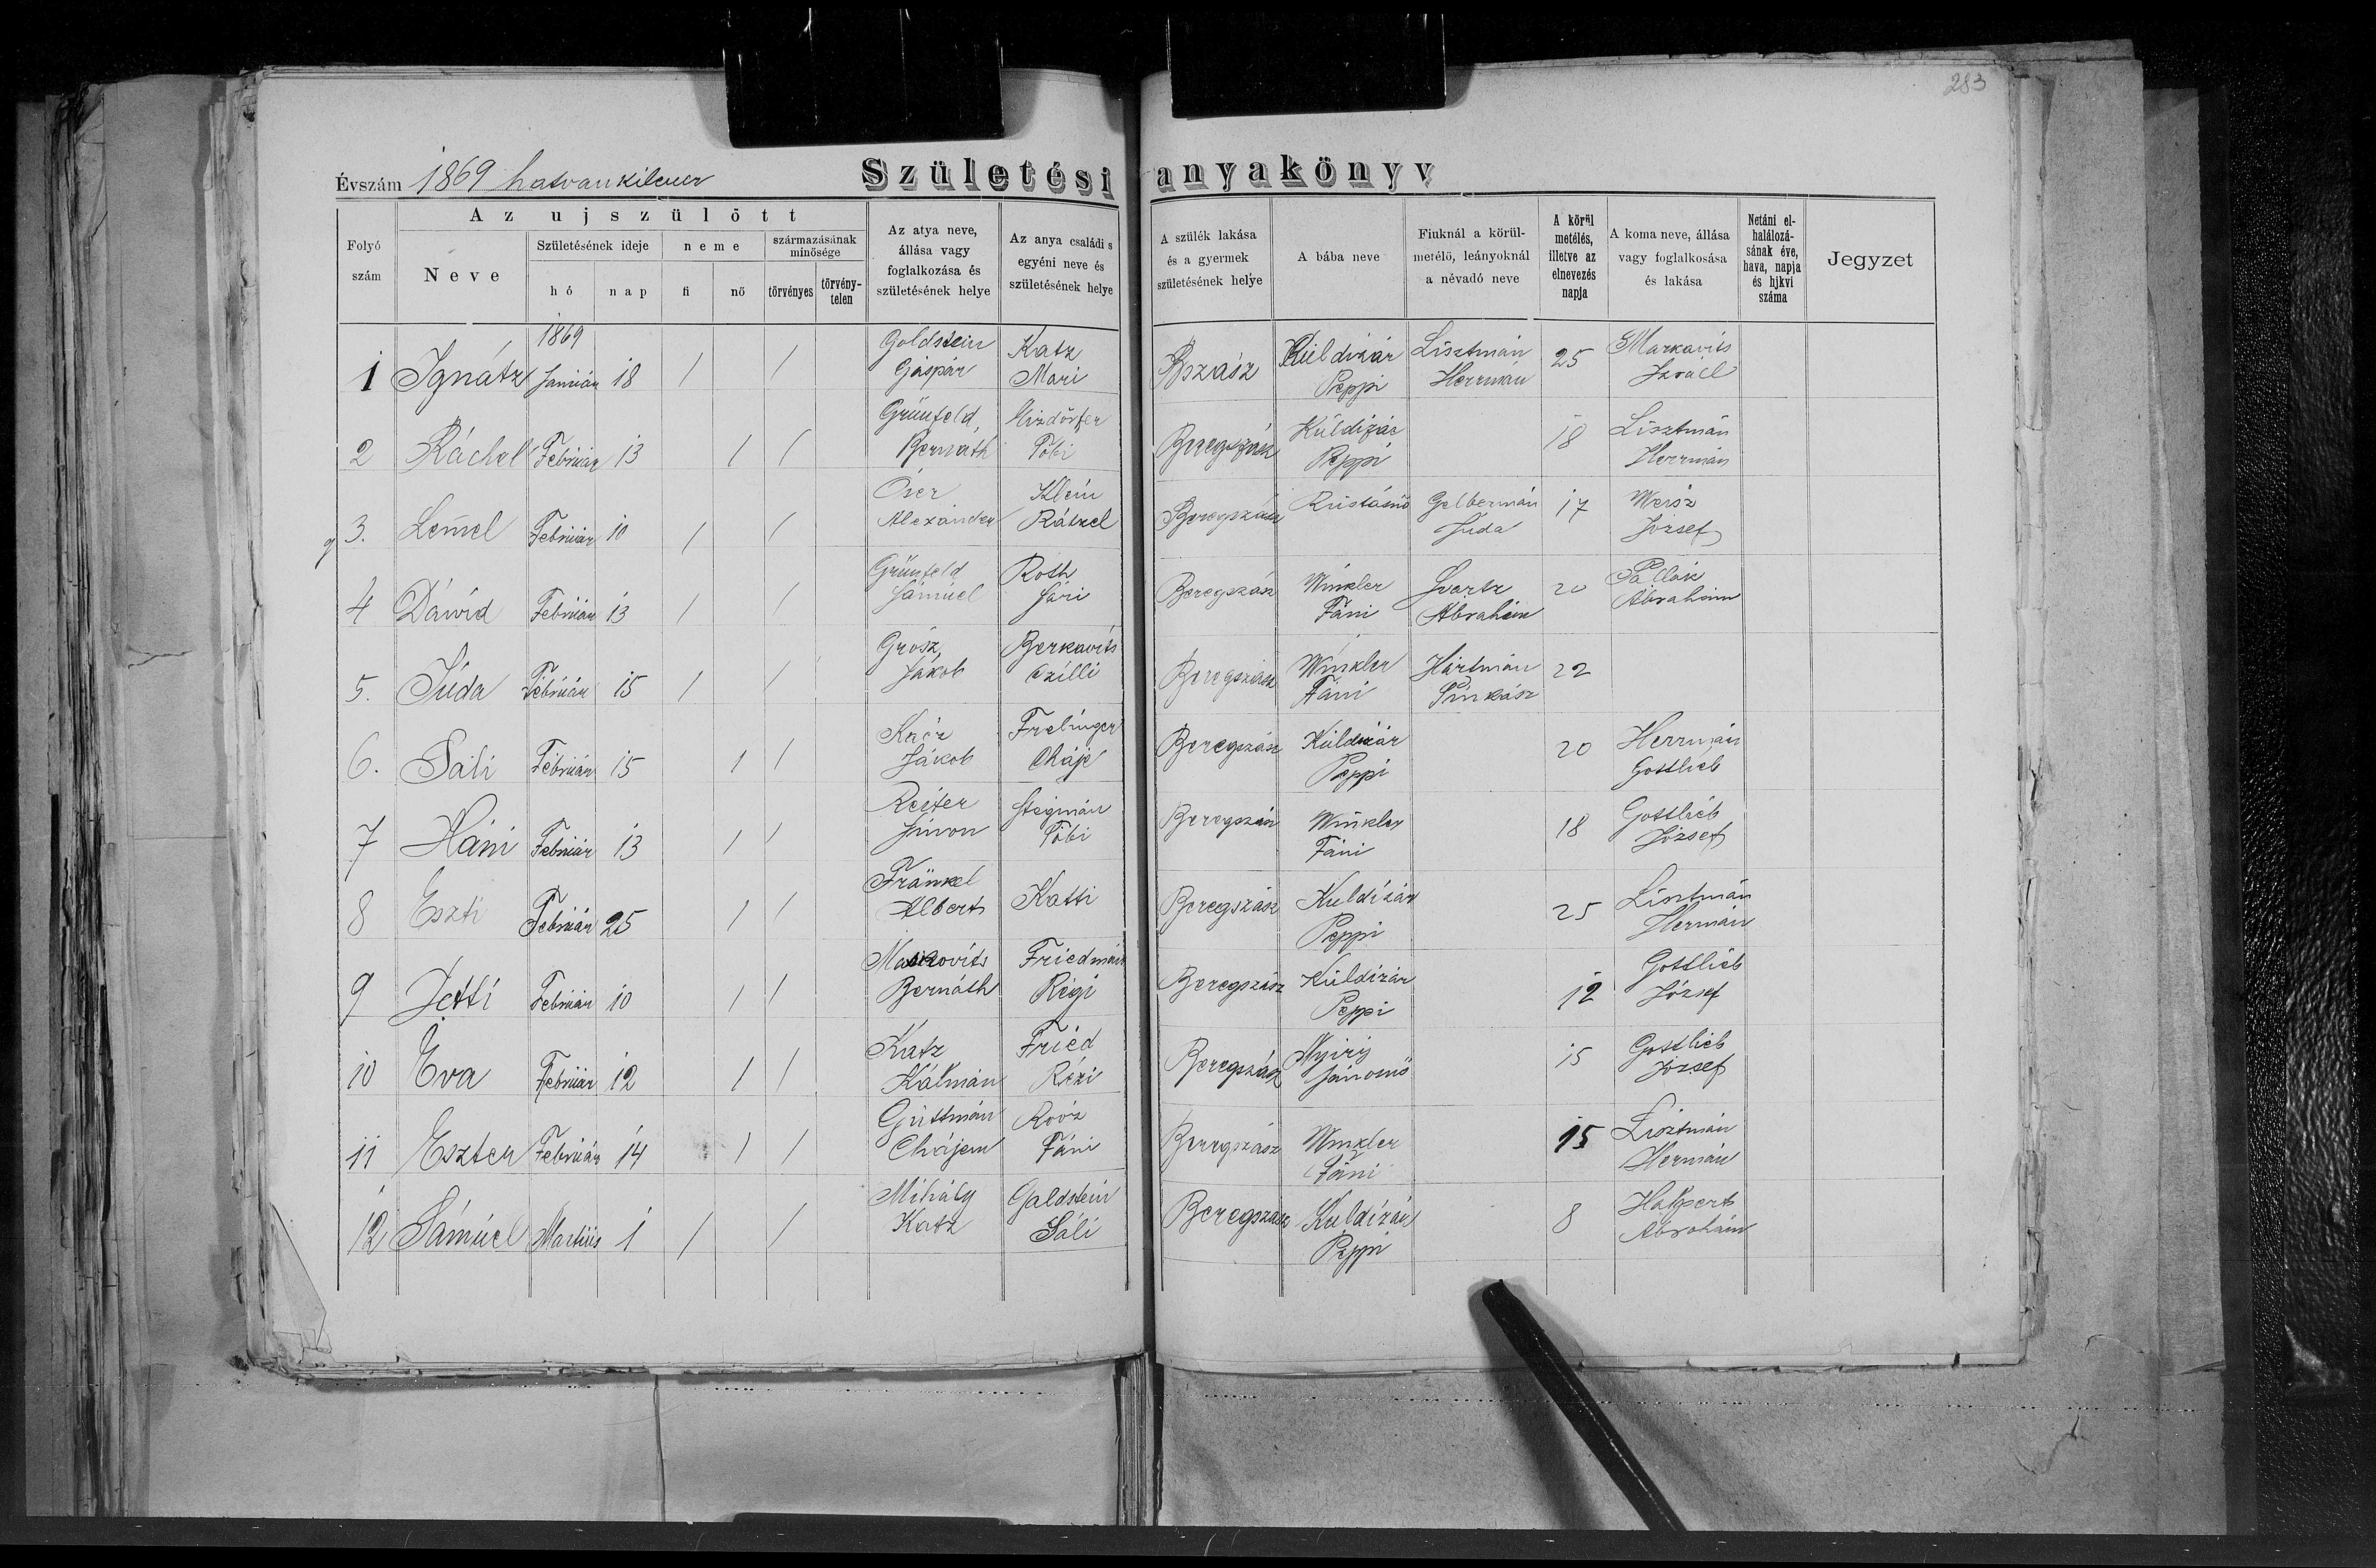 283
Évszám 1869 hatvankilencz
Születési anyakönyv
Folyó szám
Az ujszülött
Neve
Születésének ideje
hó
nap
neme
fi
nő
származásának minősége
törvényes
törvénytelen
Az atya neve, állása vagy foglalkozása és születésének helye
Az anya családi s egyéni neve és születésének helye
A szülék lakása és a gyermek születésének helye
A bába neve
Fiuknál a körülmetélő, leányoknál a névadó neve
A körül metélés, illetve az elnevezés napja
A koma neve, állása vagy foglalkosása és lakása
Netáni elhalálozásának éve, hava, napja és hjkvi száma
Jegyzet
1869
1 Ignátz Január 18 / / Goldstein Gáspár Katz Mari Bszász Küldizár Peppi Lisztmán Herrmán 25 Markavits Izráel
2 Ráchel Február 13 / / Grünfeld, Bernáth Töbi Beregszász Küldizár Peppi 18 Lisztmán Herrmán
3. Lemel Február 10 / / Alexánder Klein Rátzel Beregszász Gelbermán Juda 17 Weisz József
4 Dávid Február 13 / / Grünfeld Sámúel Roth Sári Beregszász Winkler Fáni Svartz Abrahám 20 Pollák Abrahám
5. Júda Február 15 / / Grósz, Jákob Berkavits Czilli Beregszász Winkler Fáni Hártmán Pinkász 22
6. Sáli Február 15 / / Jákob Frelinger Cháje Beregszász Küldizár Peppi 20 Herrmán Gottlieb
7 Háni Február 13 / / Reiter Simon Stegmán Töbi Beregszász Winkler Fáni 18 Gottlieb József
8 Eszti Február 25 / / Fränkel Albert Katti Beregszász Kuldizár Peppi 25 Lisztmán Hermán
9 Jetti Február 10 / / Markovits Bernáth Friedmán Régi Beregszász Küldizár Peppi 12 Gottlieb József
10 Éva Február 12 / / Katz Kálmán Fried Rézi Beregszász Nyiri Jánosné 15 Gottlieb József
11 Eszter Február 14 / / Guttmán Chájem Roóz Fáni Beregszász Winkler Fáni 15 Lisztmán Hermán
12 Sámúel Martius 1 / / Mihály Katz Galdstein Sáli Beregszász Kuldizár Peppi 8 Halpert Abrahám